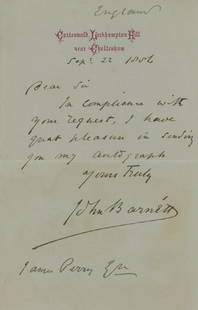 England
Cotteswold, Leckhampton Hill
near Cheltenham
Sept 22 1886
Dear Sir
In compliance with
your request, I have
great pleasure in sending
you my autograph
Yours Truly
John Barnett
James Perry Esq